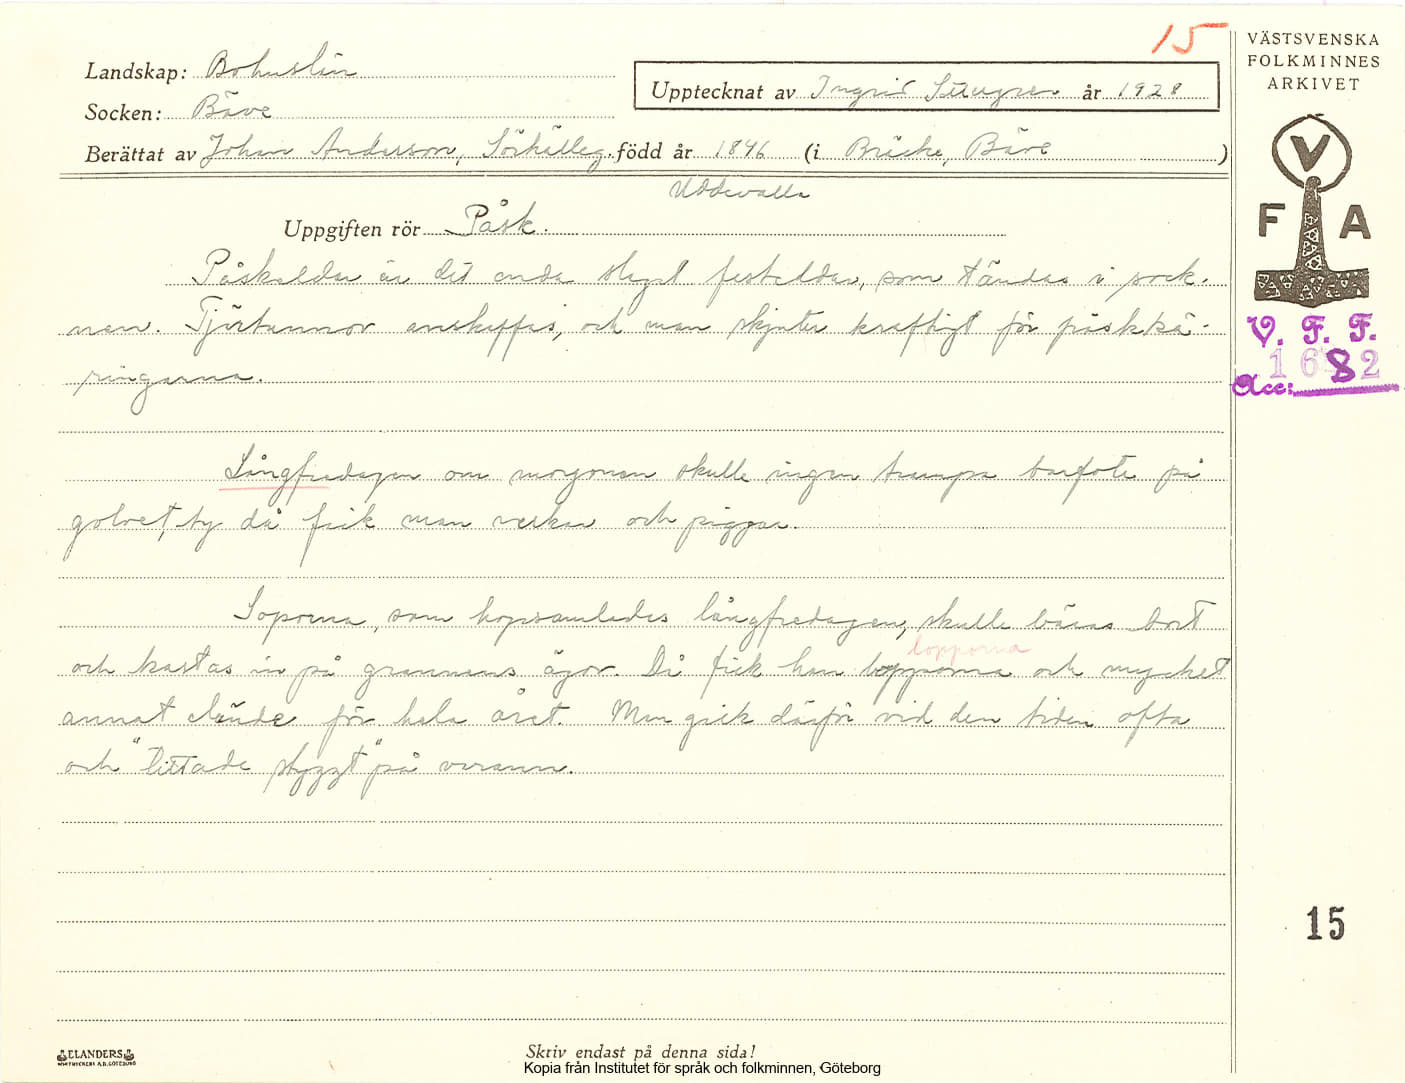 15
VÄSTSVENSKA
FOLKMINNES
ARKIVET
Landskap: Bohuslän
Upptecknat av Ingrid år 1928
Socken: Bäve
Berättat av Johan Anderson, född år 1846 (i Bräcke, Bäve )
Uddevalla
Uppgiften rör Påsk.
V
F A
Påskeldar är det enda slags festeldar, som tändas i sock-
nen. Tjärtunnor anskaffas, och man skjuter kraftigt för påskkä-
ringarna.
V. F. F.
1682
Acc:
Långfredagen om morgonen skulle ingen trampa barfota på
golvet, ty då fick man verkar och piggar.
Soporna, som hopsamlades långfredagen, skulle bäras bort
lopporna
och kastas in på grannens ägor. Då fick han lopporna och mycket
annat elände för hela året. Man gick därför vid den tiden ofta
och "tittade styggt" på varann.
15
ELANDERS
Skriv endast på denna sida!
Kopia från Institutet för språk och folkminnen, Göteborg